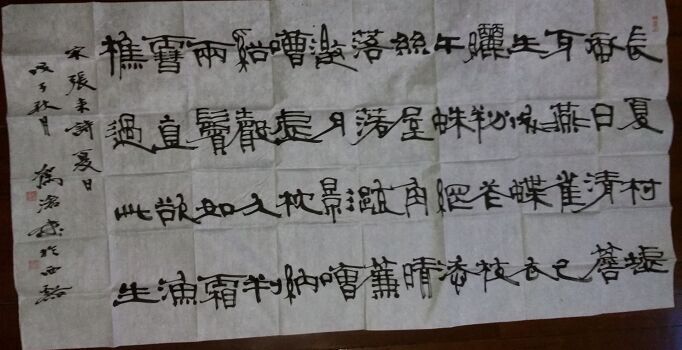 長夏村墟
風日清簷
牙燕雀已
生成蝶衣
曬粉花枝
午蛛網添
絲屋角晴
落落疏簾
邀月影嘈
嘈虛枕納
谿聲久判
兩鬢如霜
雪直欲漁
樵過此生
宋張耒詩夏日
戊子秋月